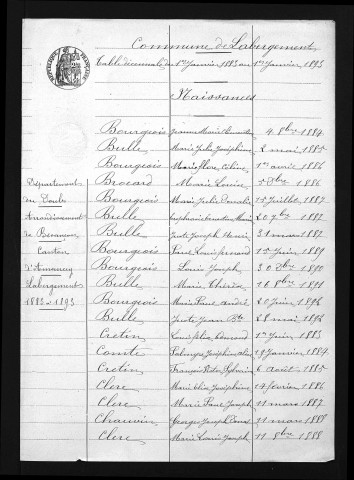 Commune de Labergement
Table décennale du 1er Janvier 1883 au 1er Janvier 1893
Naissances
Département
du Doubs
Arrondissement
de Besançon
Canton
d'Amancey
Labergement
1883-1893
Bourgeois Jeanne Marie 4 8bre 1884
Bulle Marie Julie Joséphine 2 mai 1885
Bourgeois Marie flore Céline 1er avril 1886
Brocard Marie Louise 1886
Bourgeois Marie Julie Juillet 1887
Bulle Marie 20 7bre 1887
Bulle Juste Joseph Henri 31 mars 1887
Bourgeois Paul Louis Juin 1889
Bourgeois Louis Joseph 30 1890
Bulle Marie Thérèse 16 8bre 1891
Bourgeois Marie Paul André 20 Juin 1896
Bulle Juste Jean Bte 28 mai 1896
Cretin Louis Juin 1883
Comte Joséphine 19 Janvier 1884
Cretin François Sylvain 6 août 1885
Clerc Marie Elise Joséphine 14 février 1886
Clerc Marie Paul Joseph 11 mars 1887
Chauvin Georges Joseph 11 mars 1888
Clerc Marie Louis Joseph 11 8bre 1888